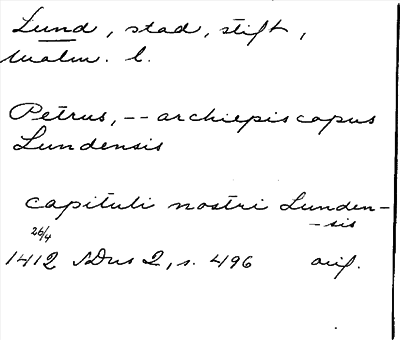 Lund, stad, stift,
Malm. l.
Petrus, -- archiepiscopus
Lundensis
capituli nostri Lunden-
-sis
26/4
1412 SDns 2, s. 496 avf.